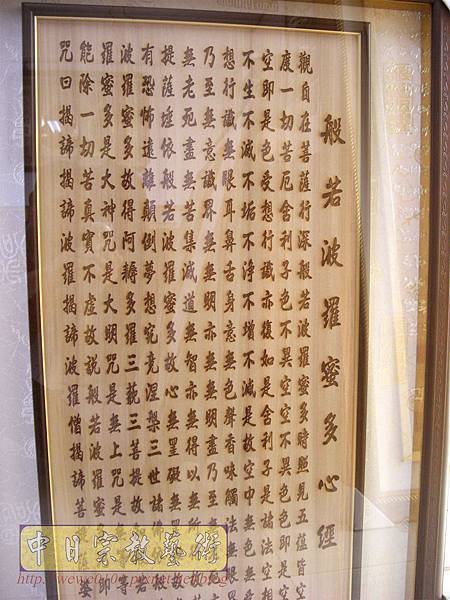 般若波羅蜜多心經
觀自在菩薩行深般若波羅蜜多時照見五蘊皆空
度一切苦厄舍利子色不異空空不異色色即是空
空即是色受想行識亦復如是舍利子是諸法空相
不生不滅不垢不淨不增不減是故空中無色無受
想行識無眼耳鼻舌身意無色聲香味觸法無眼界
乃至無意識界無無明亦無無明盡乃至無
無老死盡無苦集滅道無智亦無得以無所
提薩埵依般若波羅蜜多故心無罣礙無罣
有恐怖遠離顛倒夢想究竟涅槃三世諸
波羅蜜多故得阿耨多羅三藐三菩提故
羅蜜多是大神咒是大明咒是無上咒是
能除一切苦真實不虛故說般若波羅蜜
咒曰揭諦揭諦波羅揭諦波羅僧揭諦菩
中日宗教藝術